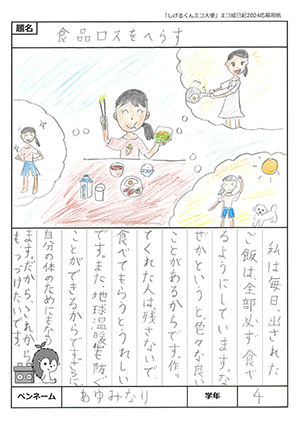 「しげるくんエコ大使」エコ絵日記2024応募用紙
題名
食品ロスをへらす
私は毎日、出された
ご飯は全部必ず食べ
るようにしています。な
ぜかというと色々な良い
ことがあるからです。作っ
てくれた人は残さないで
食べてもらうとうれしい
です。また地球温暖も防ぐ
ことができるからです。さらに
自分の体のためにもなり
ます。だから、これから
もつづけたいです。
ペンネーム
あゆみなり
学年
4